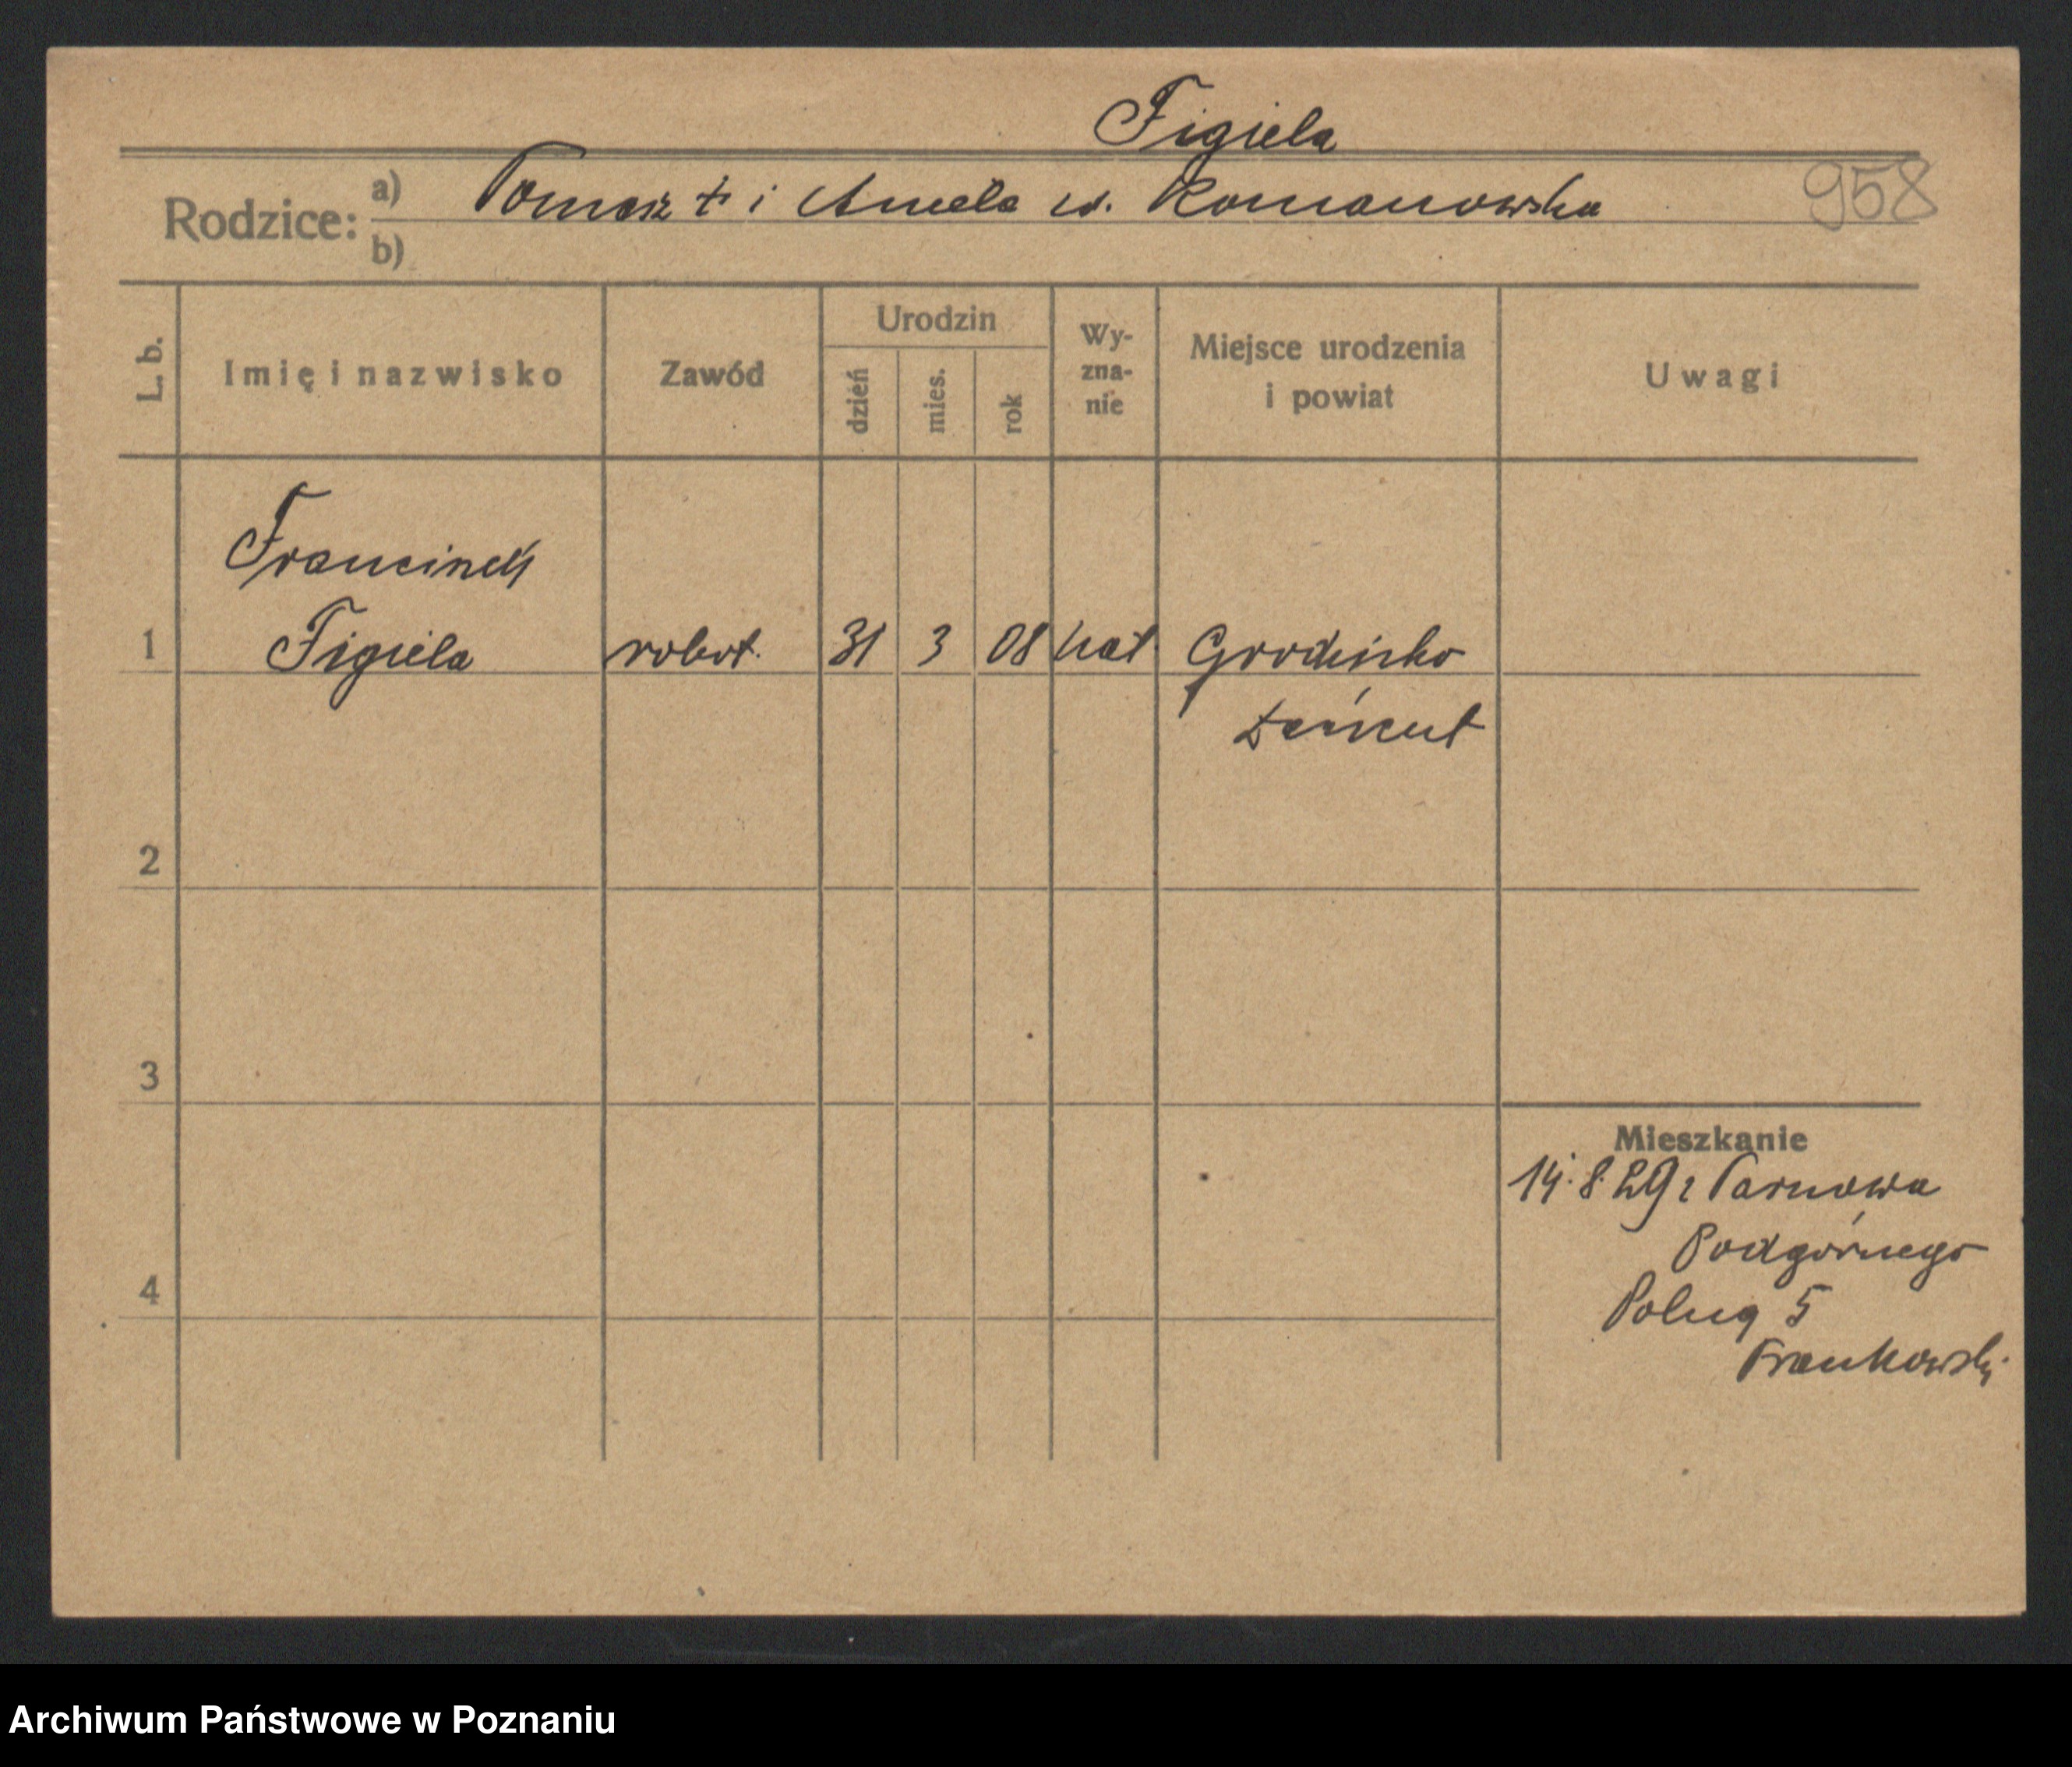 Figiela
Rodzice: a) Tomasz + i Aniela w. Romanowska 958
b)
L. b. Imię i nazwisko Zawód Urodzin dzień mies. rok Wy-zna-nie Miejsce urodzenia i powiat Uwagi
Franciszek
1 Figiela robot. 31 3 08 kat Grodzisko
Łańcut
2
3
Mieszkanie
14. 8. 29 z Tarnowa
Podgórnego
4 Polną 5
Frankowski
Archiwum Państwowe w Poznaniu